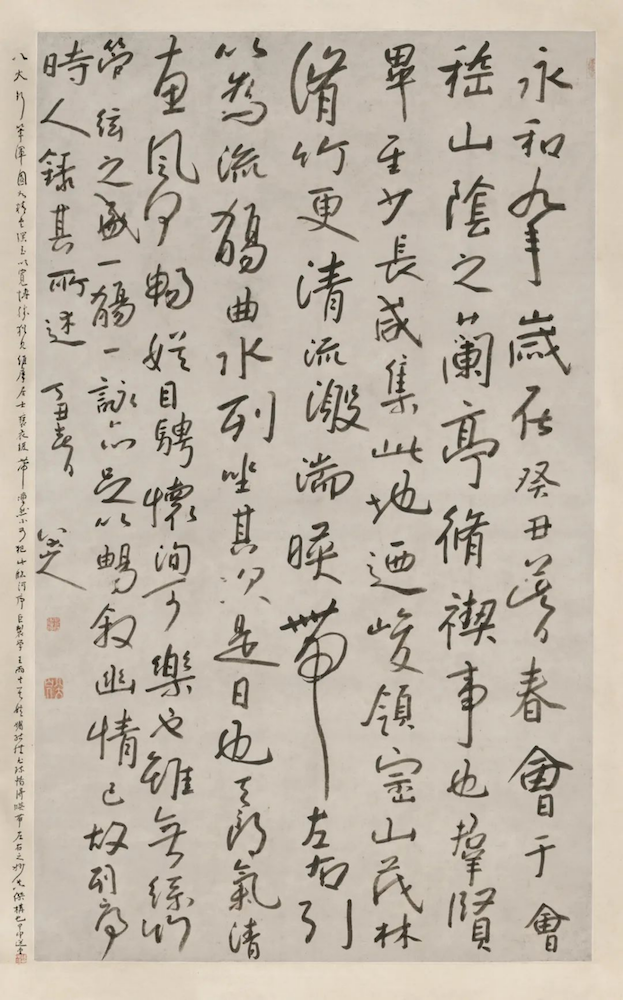 永和九年歲在癸丑暮春會于會
稽山陰之蘭亭脩禊事也羣賢
畢至少長咸集此地迺峻領崇山茂林
脩竹更清流激湍暎帶左右引
以為流觴曲水列坐其次是日也天朗氣清
惠風和暢娛目騁懷洵可樂也雖無絲竹
管絃之盛一觴一詠亦足以暢敘幽情已故列序
時人錄其所述 丁丑春日 八大山人
八大行筆渾圓